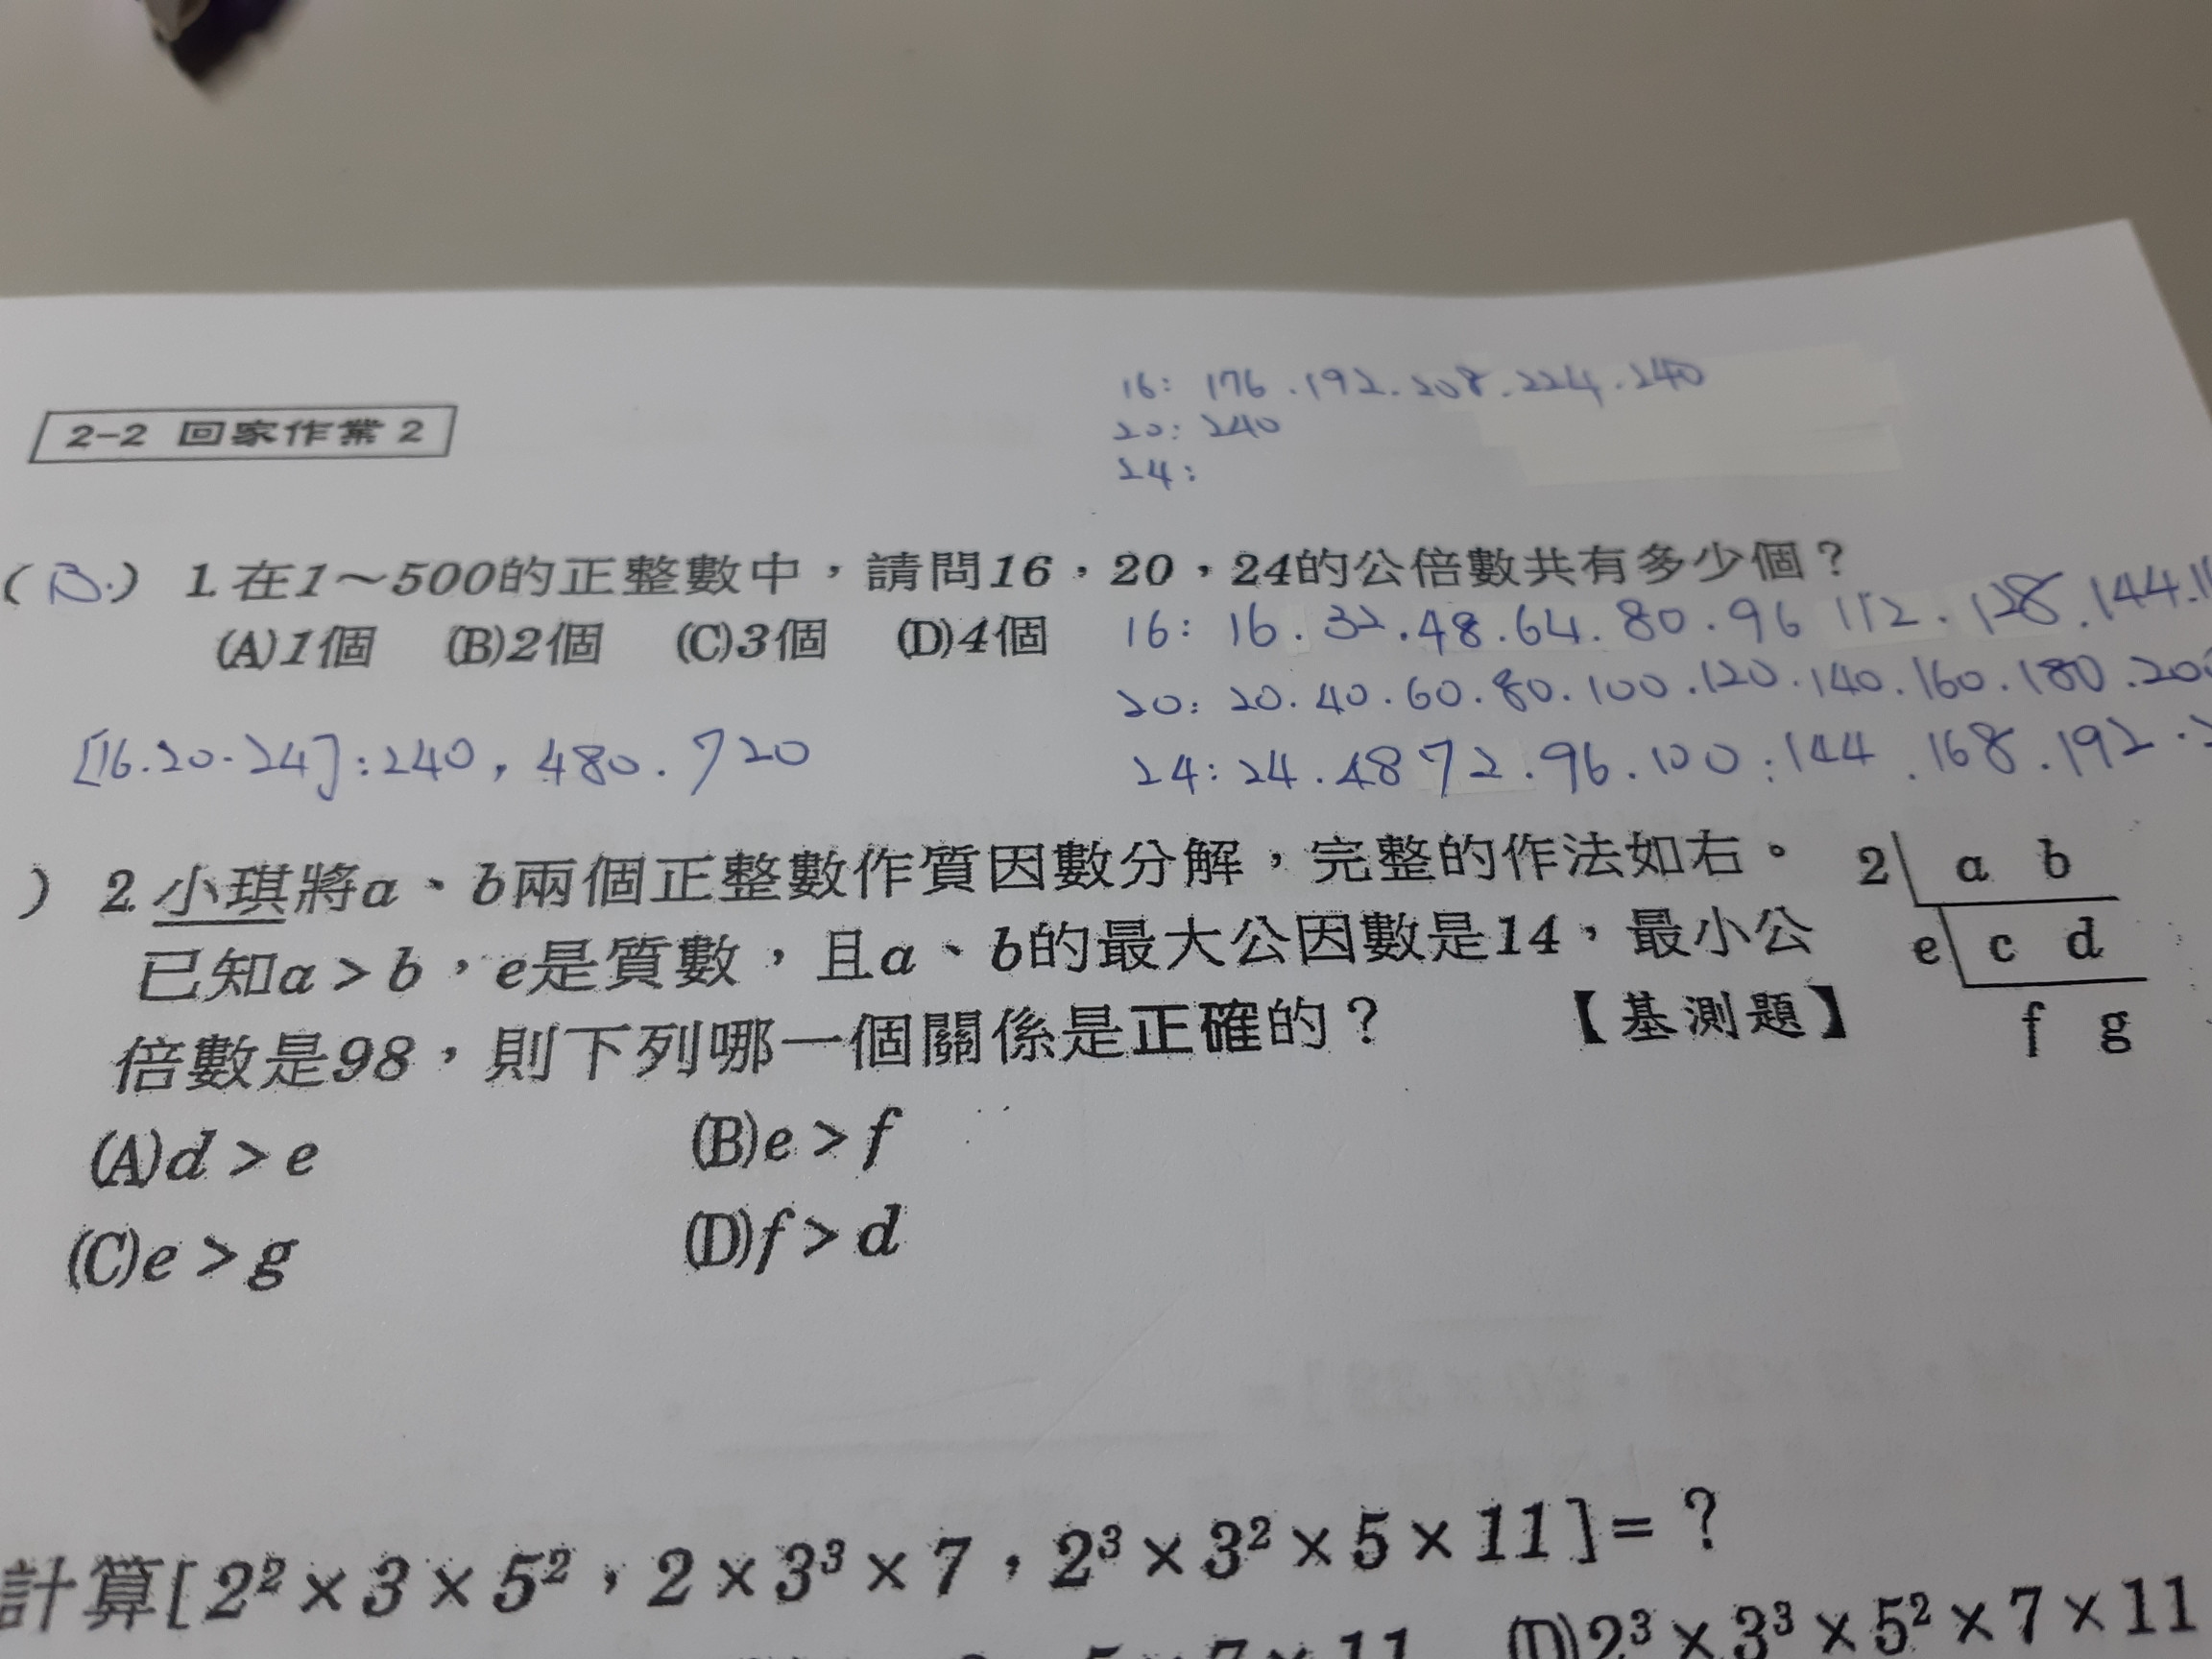 16: 176.192.208.224.240
20: 240
24:
2-2 回家作業2
(B.) 1.在1～500的正整數中，請問16，20，24的公倍數共有多少個？
(A)1個 (B)2個 (C)3個 (D)4個
16: 16.32.48.64.80.96 112.128.144.
20: 20.40.60.80.100.120.140.160.180.200
[16.20.24]:240, 480.720
24:24.48 72.96.100:144.168.192.
) 2.小琪將a、b兩個正整數作質因數分解，完整的作法如右。
已知a＞b，e是質數，且a、b的最大公因數是14，最小公
倍數是98，則下列哪一個關係是正確的？ 【基測題】
2 a b
e c d
f g
(A)d＞e (B)e＞f
(C)e＞g (D)f＞d
計算[2²×3×5²，2×3³×7，2³×3²×5×11]=？
(D)2³×3³×5²×7×11